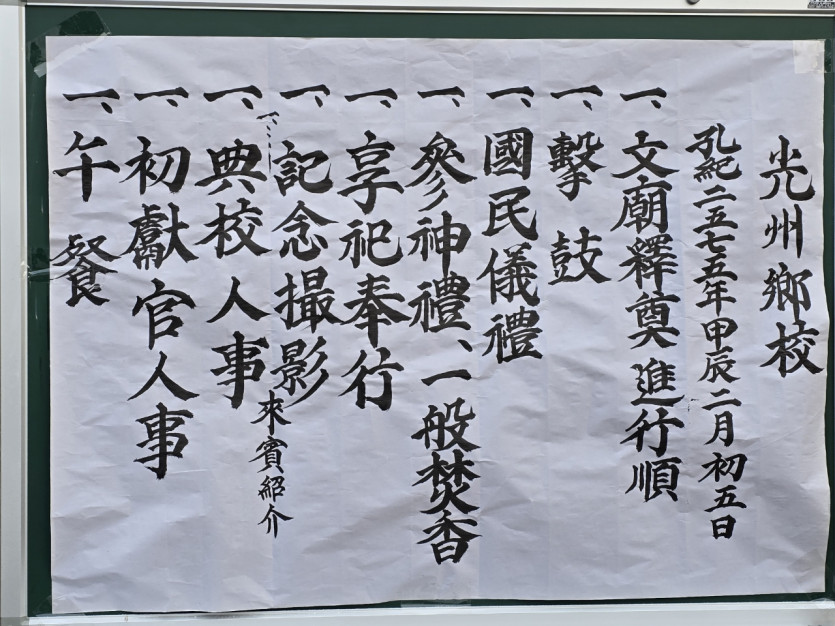 光州鄉校
孔紀二五七五年甲辰二月初五日
一、文廟釋奠進行順
一、擊鼓
一、國民儀禮
一、參神禮、一般焚香
一、享祀奉行
一、記念撮影
一、來賓紹介
一、典校人事
一、初獻官人事
一、午餐